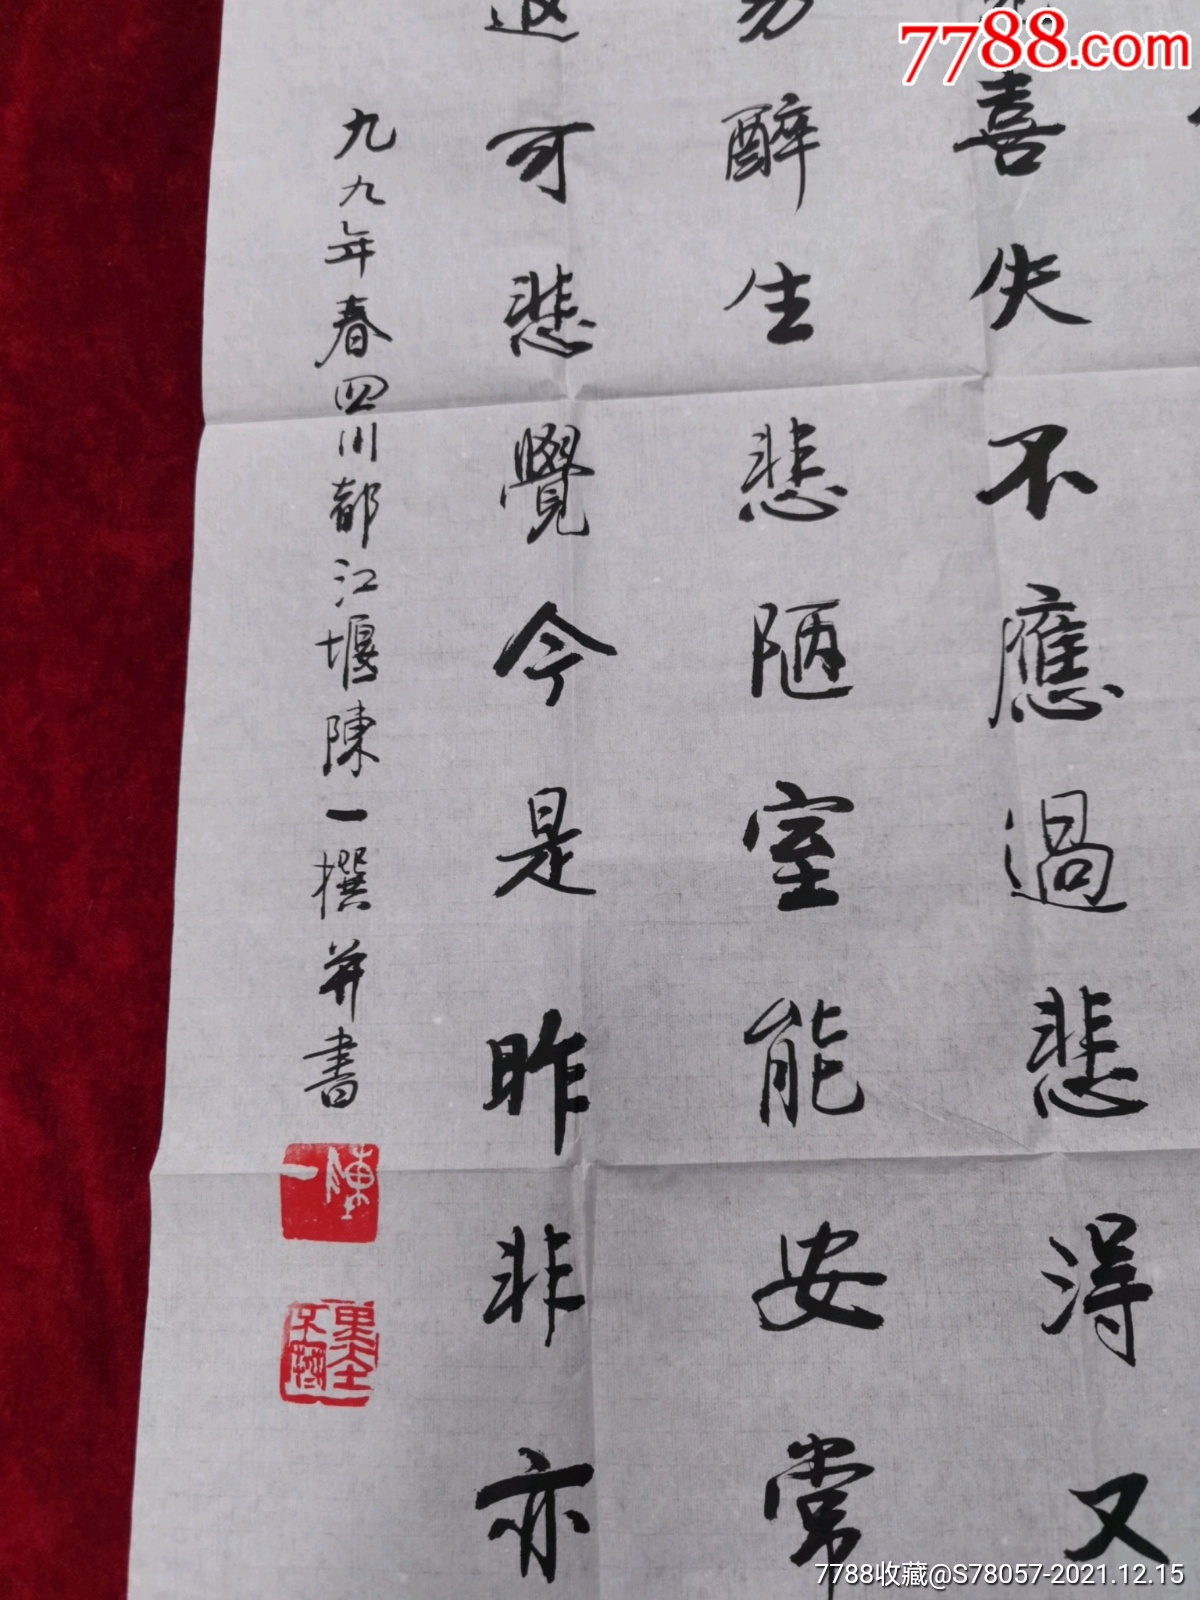 7788.com
喜失不應過悲得又
醉生悲陋室能安常
可悲覺今是昨非亦
九九年春四川都江堰陳一撰并書
陳一
7788收藏@S78057-2021.12.15